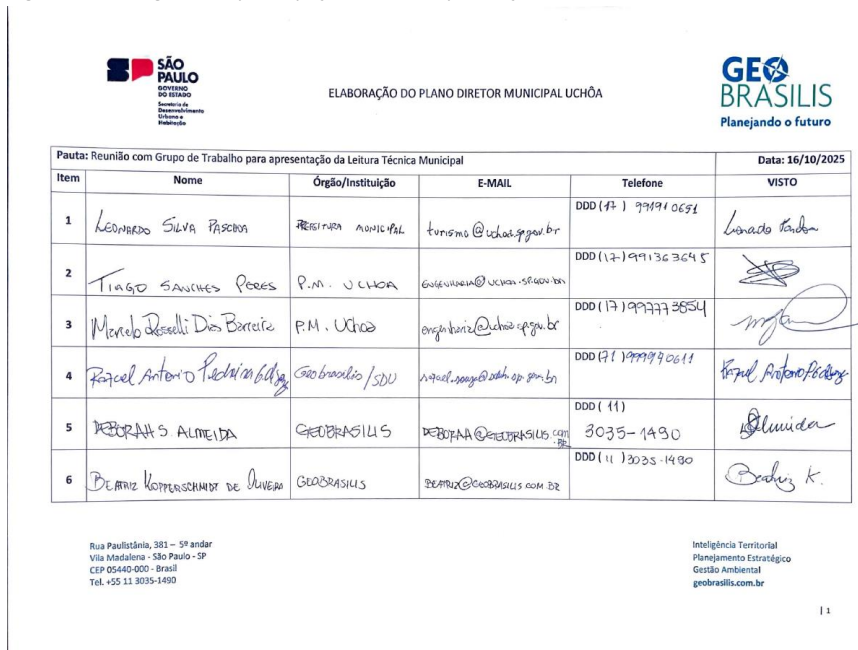 SÃO
PAULO
GOVERNO
DO ESTADO
Secretaria de
Desenvolvimento
Urbano e
Habitação
ELABORAÇÃO DO PLANO DIRETOR MUNICIPAL UCHÔA
GEO
BRASILIS
Planejando o futuro
Pauta: Reunião com Grupo de Trabalho para apresentação da Leitura Técnica Municipal Data: 16/10/2025
Item Nome Órgão/Instituição E-MAIL Telefone VISTO
1 LEONARDO SILVA PASCHOA PREFEITURA MUNICIPAL turismo@uchoa.sp.gov.br DDD (17) 991910651
2 TIAGO SANCHES PERES P.M. UCHOA ENGENHARIA@UCHOA.SP.GOV.BR DDD (17) 991363645
3 Marcelo Rosselli Dias Barreira P.M. Uchoa engenharia@uchoa.sp.gov.br DDD (17) 997773854
4 Rafael Antonio Pedrina Geobrasilis/SDU DDD (71) 999940611 Rafael Antonio
5 DEBORAH S. ALMEIDA GEOBRASILIS DDD (11) 3035-1490 Almeida
6 BEATRIZ KOPPERSCHMIDT DE OLIVEIRA GEOBRASILIS BEATRIZ@GEOBRASILIS.COM.BR DDD (11) 3035-1490 Beatriz K.
Rua Paulistânia, 381 – 5º andar
Vila Madalena - São Paulo - SP
CEP 05440-000 - Brasil
Tel. +55 11 3035-1490
Inteligência Territorial
Planejamento Estratégico
Gestão Ambiental
geobrasilis.com.br
| 1